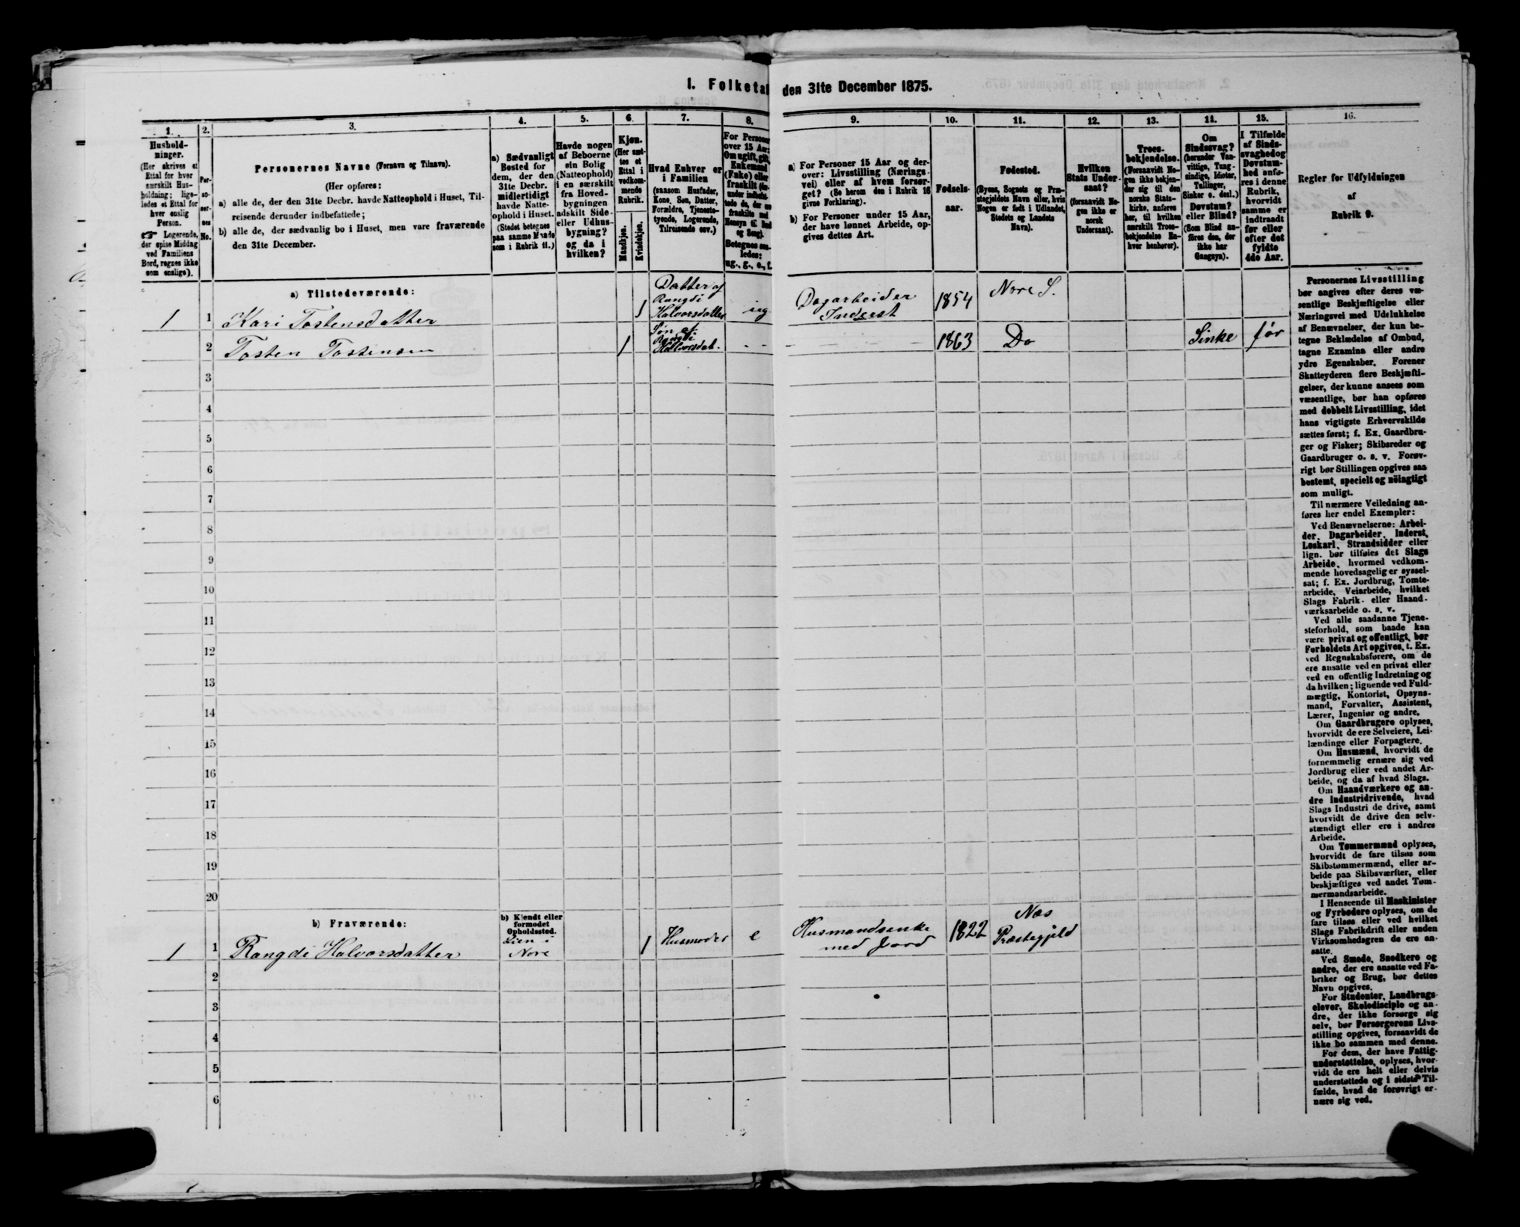 I. Folketal den 31te December 1875.
1.
2.
3.
4.
5.
6.
7.
8.
9.
10.
11.
12.
13.
14.
15.
16.
Hushold-
ninger.
(Her skrives et
Ettal for hver
særskilt Hus-
holdning; lige-
ledes et Ettal for
hver enslig
Person.
Logerende,
der spise Middag
ved Familiens
Bord, regnes ikke
som enslige).
Personernes Navne (Fornavn og Tilnavn).
(Her opføres:
a) alle de, der den 31te Decbr. havde Natteophold i Huset, Til-
reisende derunder indbefattede;
b) alle de, der sædvanlig bo i Huset, men vare fraværende
den 31te December.
a) Sædvanligt
Bosted for
dem, der den
31te Decbr.
midlertidigt
havde Natte-
ophold i Huset.
(Stedet betegnes
paa samme Maade
som i Rubrik 11.)
Havde nogen
af Beboerne
sin Bolig
(Natteophold)
i en særskilt
fra Hoved-
bygningen
adskilt Side-
eller Udhus-
bygning?
og da i
hvilken?
Kjøn.
(Her sæt-
tes et
Ettal i
vedkom-
mende
Rubrik.
Mandkjøn.
Kvindekjøn.
Hvad Enhver er
i Familien
(saasom Husfader,
Kone, Søn, Datter,
Forældre, Tjeneste-
tyende, Logerende,
Tilreisende osv.)
For Personer
over 15 Aar:
Om ugift, gift,
Enkemand
(Enke) eller
fraskilt
Betegnes saa-
ledes:
ug., g., e., f.
a) For Personer 15 Aar og der-
over: Livsstilling (Nærings-
vei) eller af hvem forsør-
get? (Se herom den i Rubrik 16
givne Forklaring).
b) For Personer under 15 Aar,
der have lønnet Arbeide, op-
gives dettes Art.
Fødsels-
aar.
Fødested.
(Byens, Sognets og Præ-
stegjeldets Navn eller, hvis
Nogen er født i Udlandet,
Stedets og Landets
Navn).
Hvilken
Stats Under-
saat?
(forsaavidt No-
gen ikke er
norsk
Undersaat).
Troes-
bekjendelse.
(Forsaavidt No-
gen ikke bekjen-
der sig til den
norske Stats-
kirke, anføres
her, til hvilken
særskilt Troes-
bekjendelse En-
hver henhører).
Om
Sindssvag?
(herunder Van-
vittige, Tung-
sindige, Idioter,
Tullinger,
Sinker o. desl.)
Døvstum?
eller Blind?
(Som Blind an-
føres den, der
ikke har
Gangsyn).
I Tilfælde
af Sinds-
svaghed og
Døvstum-
hed anfø-
res i denne
Rubrik,
hvorvidt
samme er
indtraadt
før eller
efter det
fyldte
4de Aar.
Regler for Udfyldningen
af
Rubrik 9.
a) Tilstedeværende:
1 1 Kari Tostensdatter 1 Datter af Rangdi Halvorsdatter ug Dagarbeider Inderst 1854 Nore S.
2 Tosten Tostensen 1 Søn af Rangdi Halvorsdat. - - 1863 Do Sinke før
3
4
5
6
7
8
9
10
11
12
13
14
15
16
17
18
19
20
b) Fraværende:
b) Kjendt eller
formodet
Opholdssted.
1 1 Rangdi Halvorsdatter Lien i Nore 1 Husmoder e Husmandsenke med Jord 1822 Næs Præstegjeld
2
3
4
5
6
Personernes Livsstilling
bør angives efter deres væ-
sentlige Beskjæftigelse eller
Næringsvei med Udelukkelse
af Benævnelser, der kun be-
tegne Beklædelse af Ombud,
tagne Examina eller andre
ydre Egenskaber. Forener
Skatteyderen flere Beskjæfti-
gelser, der kunne ansees som
væsentlige, bør han opføres
med dobbelt Livsstilling, idet
hans vigtigste Erhvervskilde
sættes først; f. Ex. Gaardbru-
ger og Fisker; Skibsreder og
Gaardbruger o. s. v. Forøv-
rigt bør Stillingen opgives saa
bestemt, specielt og nöiagtigt
som muligt.
Til nærmere Veiledning an-
føres her endel Exempler:
Ved Benævnelserne: Arbei-
der, Dagarbeider, Inderst,
Løskarl, Strandsidder eller
lign. bør tilføies det Slags
Arbeide, hvormed vedkom-
mende hovedsagelig er syssel-
sat; f. Ex. Jordbrug, Tomte-
arbeide, Veiarbeide, hvilket
Slags Fabrik- eller Haand-
værksarbeide o. s. v.
Ved alle saadanne Tjene-
steforhold, som baade kan
være privat og offentligt, bør
Forholdets Art opgives, t. Ex.
ved Regnskabsførere, om de
ere ansatte ved en privat eller
ved en offentlig Indretning og
da hvilken; lignende ved Fuld-
mægtig, Kontorist, Opsyns-
mand, Forvalter, Assistent,
Lærer, Ingeniør og andre.
Om Gaardbrugere oplyses,
hvorvidt de ere Selveiere, Lei-
lændinge eller Forpagtere.
Om Husmænd, hvorvidt de
fornemmelig ernære sig ved
Jordbrug eller ved andet Ar-
beide, og da af hvad Slags.
Om Haandværkere og an-
dre Industridrivende, hvad
Slags Industri de drive, samt
hvorvidt de drive den selv-
stændigt eller ere i andres
Arbeide.
Om Tømmermænd oplyses,
hvorvidt de fare tilsøs som
Skibstømmermænd, eller ar-
beide paa Skibsværfter, eller
beskjæftiges ved andet Tøm-
mermandsarbeide.
I Henseende til Maskinister
og Fyrbødere oplyses, om de
fare tilsøs eller ved hvilket
Slags Fabrikdrift eller anden
Virksomhedsgren de ere an-
satte.
Ved Smede, Snedkere og
andre, der ere ansatte ved Fa-
briker og Brug, bør dettes
Navn opgives.
For Studenter, Landbrugs-
elever, Skoledisciple og an-
dre, der ikke forsørge sig
selv, bør Forsørgerens Livs-
stilling opgives, forsaavidt de
ikke bo sammen med denne.
For dem, der have Fattig-
understøttelse, oplyses, hvor-
vidt de ere helt eller delvis
understøttede og i sidste Til-
fælde, hvad de forøvrigt er-
nære sig ved.